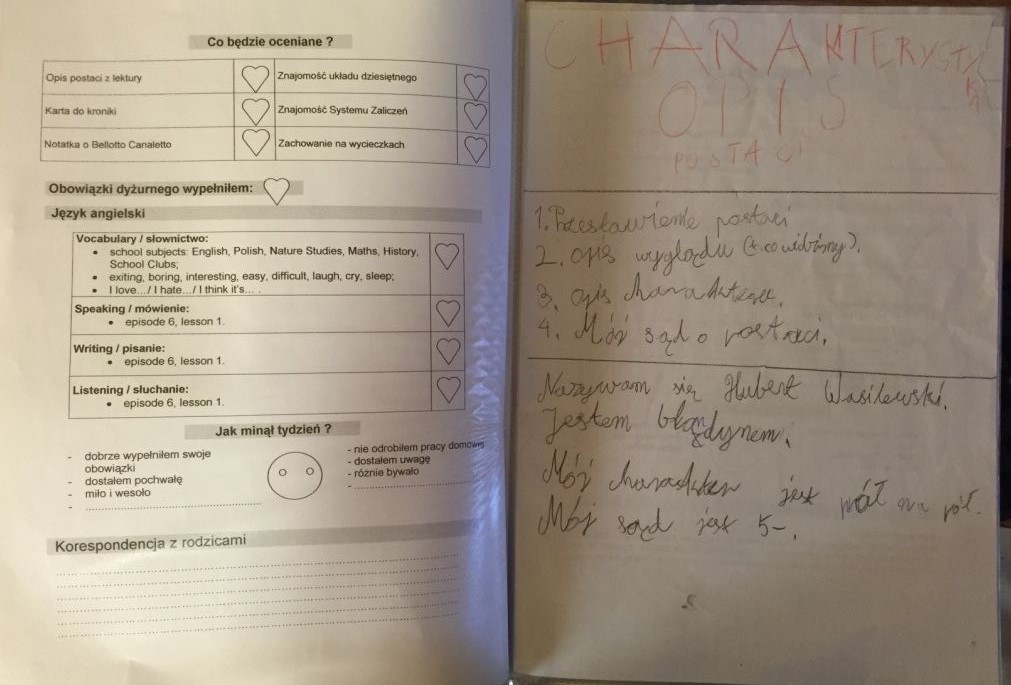 Co będzie oceniane ?
Opis postaci z lektury
Znajomość układu dziesiętnego
Karta do kroniki
Znajomość Systemu Zaliczeń
Notatka o Bellotto Canaletto
Zachowanie na wycieczkach
Obowiązki dyżurnego wypełniłem:
Język angielski
Vocabulary / słownictwo:
• school subjects: English, Polish, Nature Studies, Maths, History,
School Clubs;
• exiting, boring, interesting, easy, difficult, laugh, cry, sleep;
• I love.../ I hate.../ I think it's... .
Speaking / mówienie:
• episode 6, lesson 1.
Writing / pisanie:
• episode 6, lesson 1.
Listening / słuchanie:
• episode 6, lesson 1.
Jak minął tydzień ?
- dobrze wypełniłem swoje
obowiązki
- dostałem pochwałę
- miło i wesoło
- nie odrobiłem pracy domowej
- dostałem uwagę
- różnie bywało
Korespondencja z rodzicami
CHARAKTERYSTYKA
OPIS
POSTACI
1. Przestawienie postaci
2. opis wyglądu
3. opis charakteru.
4. Mój sąd o postaci.
Nazywam się Hubert Wasilewski.
Jestem błądynem.
Mój charakter jest pół na pół.
Mój sąd jest 5-.